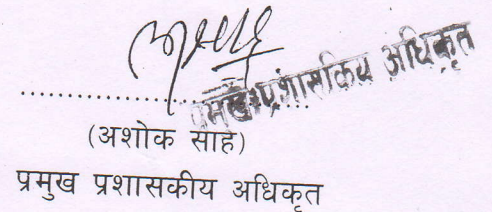 प्रमुख प्रशासकिय अधिकृत
(अशोक साह)
प्रमुख प्रशासकीय अधिकृत